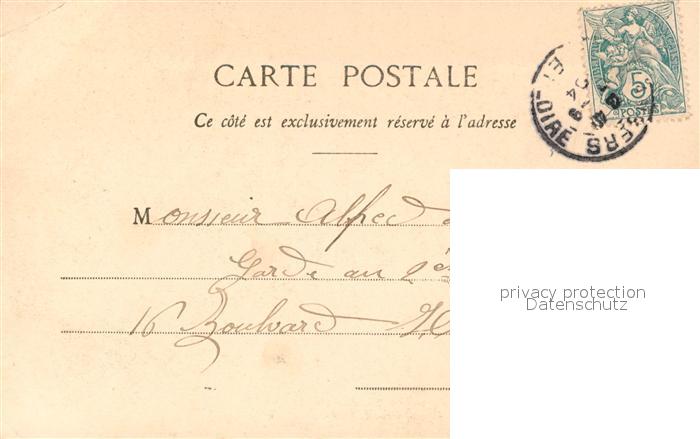 CARTE POSTALE
Ce côté est exclusivement réservé à l'adresse
5
POSTES
-LOIRE
Monsieur Alfred
Garde au
16 Boulvard H
privacy protection
Datenschutz